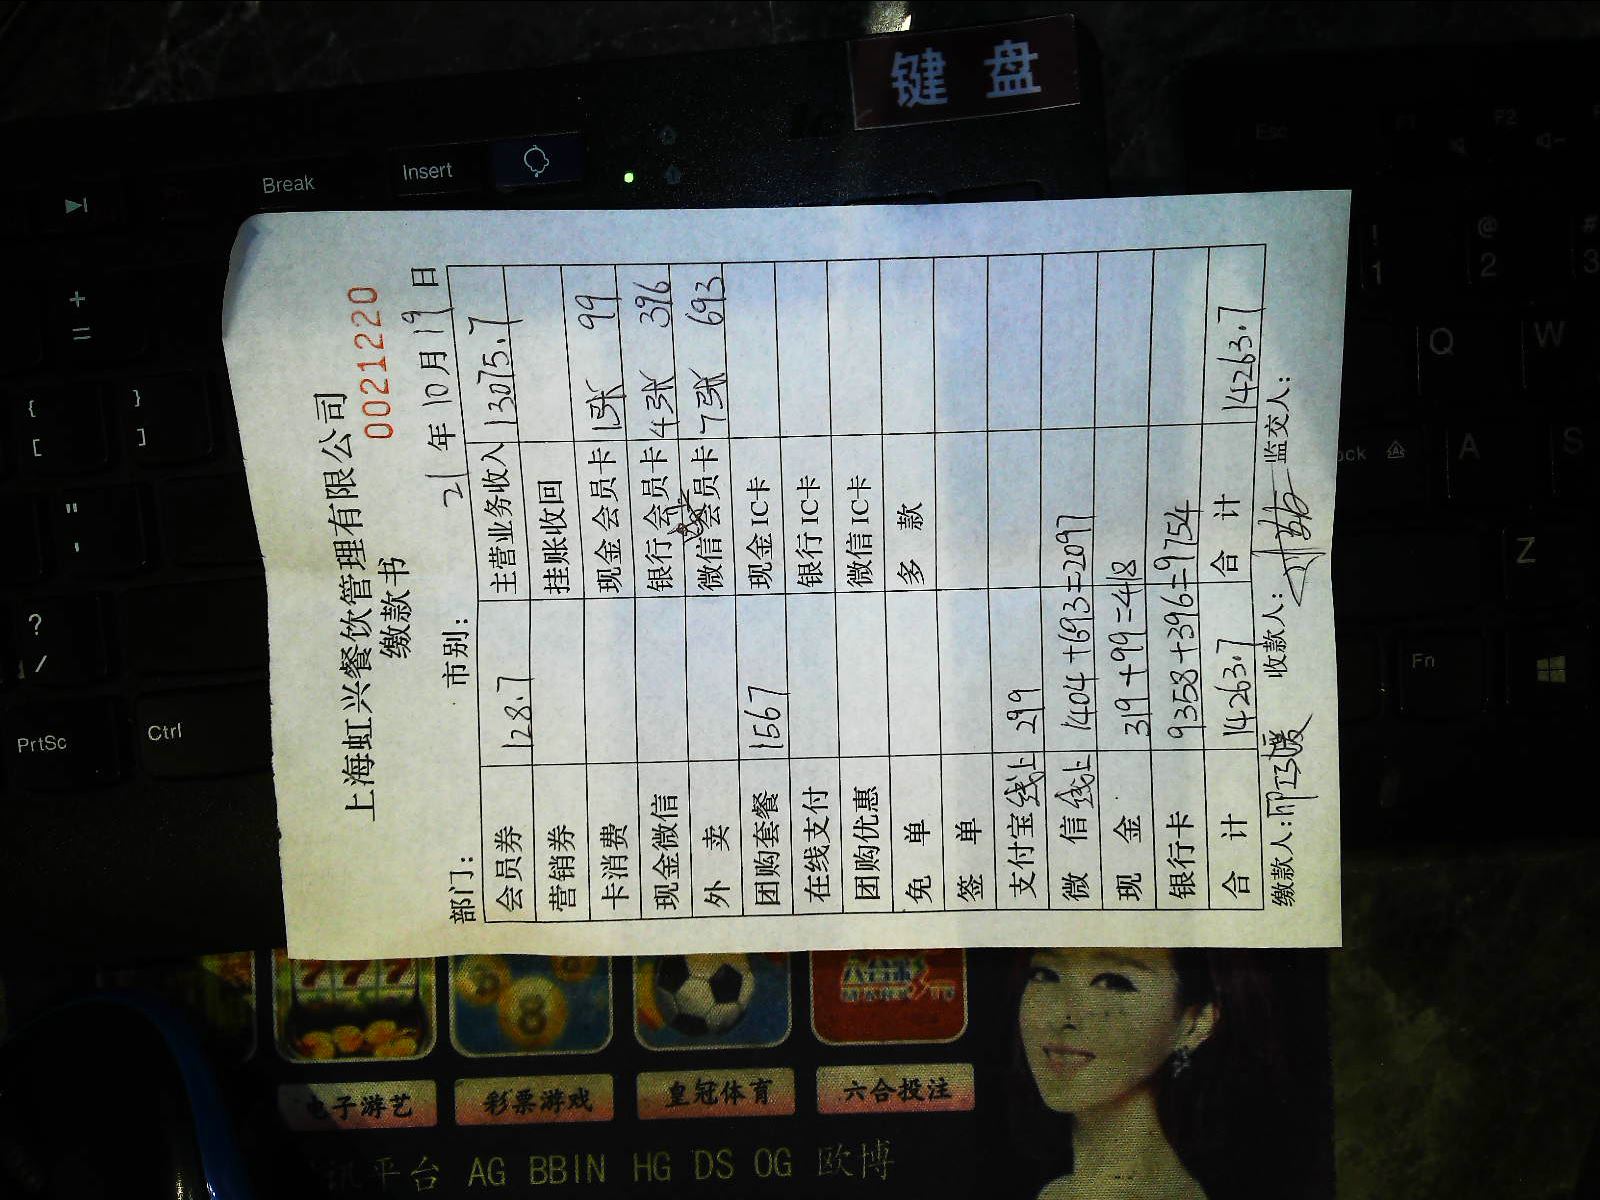 键 盘
Break
Insert
+
=
{
[
}
]
"
'
?
/
PrtSc
Ctrl
Esc
F2
!
1
@
2
#
3
Q
W
A
S
Z
Fn
上海虹兴餐饮管理有限公司
缴款书
0021220
部门: 市别: 21 年 10 月 19 日
会员券 128.7 主营业务收入 13075.7
营销券 挂账收回
卡消费 现金会员卡 1张 99
现金微信 银行会员卡 4张 396
外 卖 微信会员卡 7张 693
团购套餐 1567 现金IC卡
在线支付 银行IC卡
团购优惠 微信IC卡
免 单 多 款
签 单
支付宝线上 299
微 信 线上 1404+693=2097
现 金 319+99=418
银行卡 9358+396=9754
合 计 14263.7 合 计 14263.7
缴款人: 收款人: 监交人:
电子游艺
彩票游戏
皇冠体育
六合投注
讯平台 AG BBIN HG DS OG 欧博